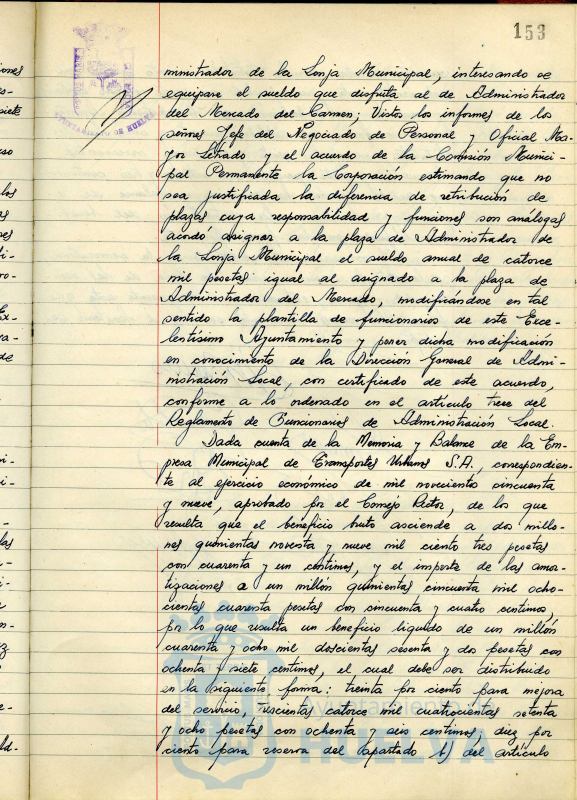 153
AYUNTAMIENTO DE HUELVA
ministrador de la Lonja Municipal, interesando se
equipare el sueldo que disfruta al de Administrador
del Mercado del Carmen; Vistos los informes de los
señores Jefe del Negociado de Personal y Oficial Ma-
yor Letrado y el acuerdo de la Comisión Munici-
pal Permanente la Corporación estimando que no
sea justificada la diferencia de retribución de
plazas cuya responsabilidad y funciones son análogas
acordó asignar a la plaza de Administrador de
la Lonja Municipal el sueldo anual de catorce
mil pesetas igual al asignado a la plaza de
Administrador del Mercado, modificándose en tal
sentido la plantilla de funcionarios de este Exce-
lentísimo Ayuntamiento y poner dicha modificación
en conocimiento de la Dirección General de Admi-
nistración Local, con certificado de este acuerdo,
conforme a lo ordenado en el artículo trece del
Reglamento de Funcionarios de Administración Local.
Dada cuenta de la Memoria y Balance de la Em-
presa Municipal de Transportes Urbanos S.A., correspondien-
te al ejercicio económico de mil novecientos cincuenta
y nueve, aprobado por el Consejo Rector, de los que
resulta que el beneficio bruto asciende a dos millo-
nes quinientas noventa y nueve mil ciento tres pesetas
con cuarenta y un centimos, y el importe de las amor-
tizaciones a un millón quinientas cincuenta mil ocho-
cientas cuarenta pesetas con cincuenta y cuatro centimos,
por lo que resulta un beneficio liquido de un millón
cuarenta y ocho mil doscientas sesenta y dos pesetas con
ochenta y siete centimos, el cual debe ser distribuido
en la siguiente forma: treinta por ciento para mejora
del servicio, trescientas catorce mil cuatrocientas setenta
y ocho pesetas con ochenta y seis centimos; diez por
ciento para reserva del apartado b) del artículo
Ayuntamiento de
HUELVA